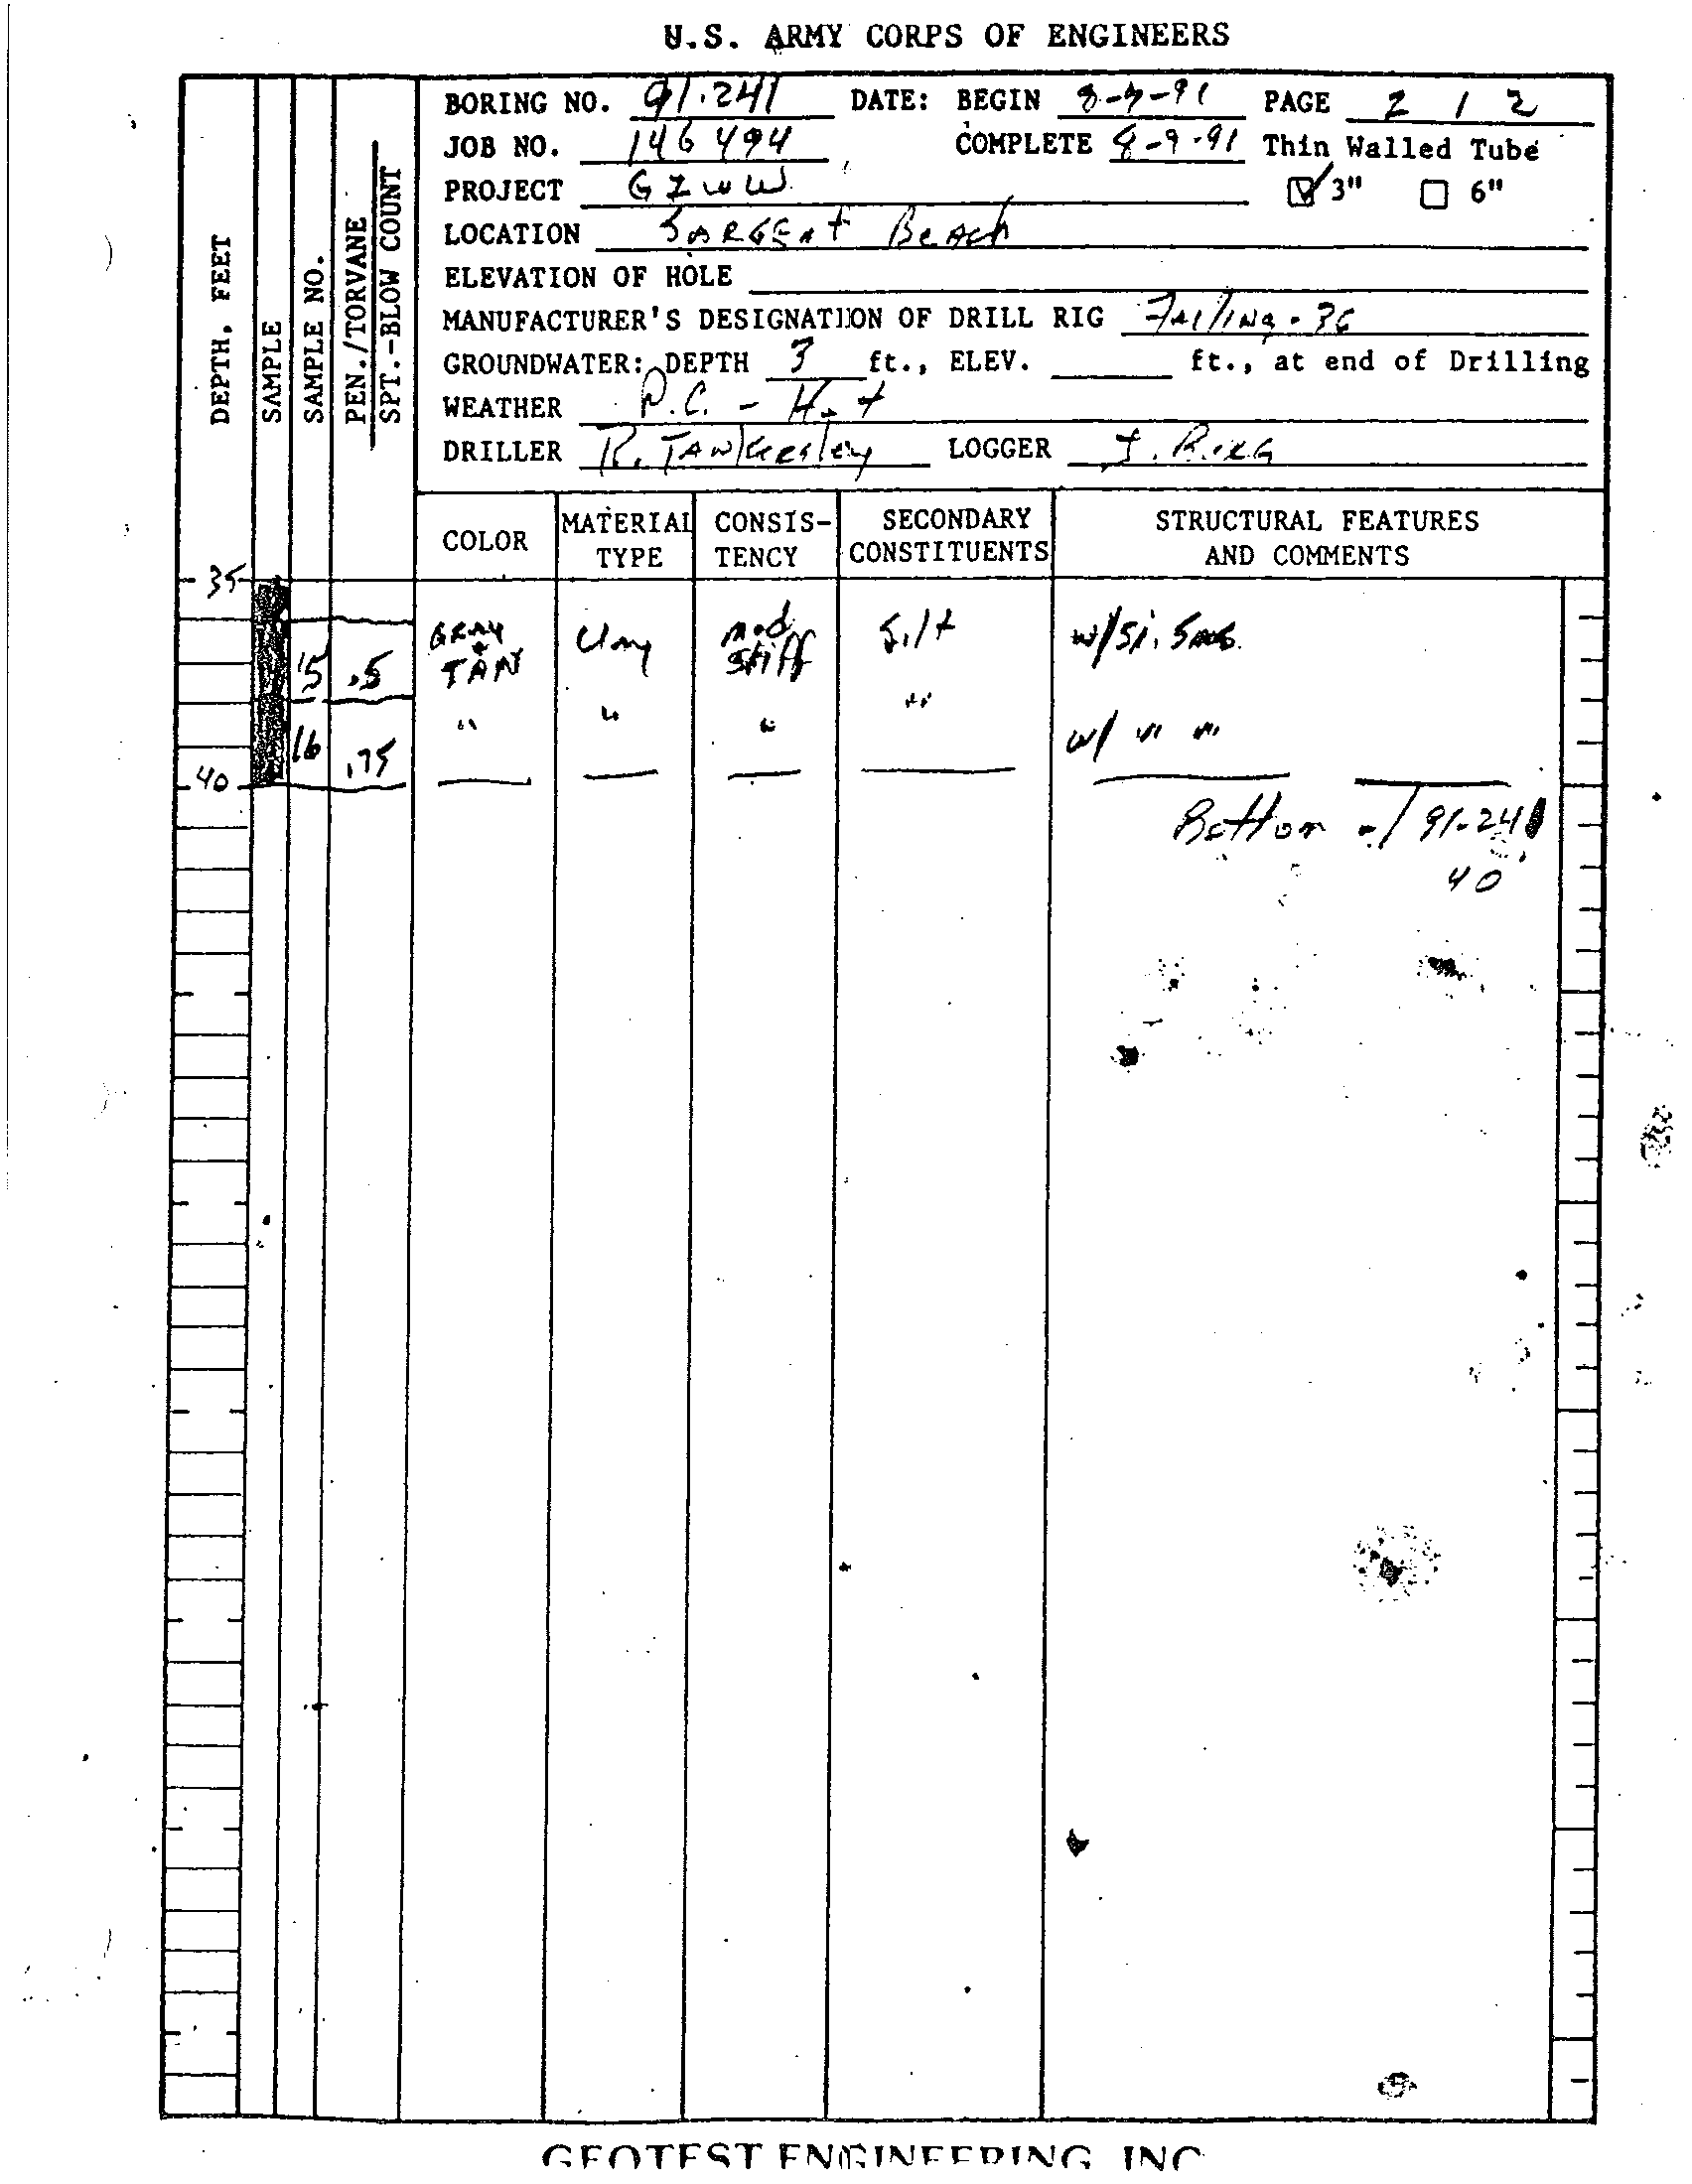 U.S. ARMY CORPS OF ENGINEERS
BORING NO. 91.241 DATE: BEGIN PAGE 2 / 2
JOB NO. 146 494 COMPLETE 8-9-91 Thin Walled Tube
PROJECT GIWW 3" 6"
LOCATION SARGENT BEACH
ELEVATION OF HOLE
MANUFACTURER'S DESIGNATION OF DRILL RIG Failing -
GROUNDWATER: DEPTH 3 ft., ELEV. ft., at end of Drilling
WEATHER P.C. - Hot
DRILLER R. TANKersley LOGGER
DEPTH, FEET
SAMPLE
SAMPLE NO.
PEN./TORVANE
SPT.-BLOW COUNT
COLOR MATERIAL TYPE CONSIS-TENCY SECONDARY CONSTITUENTS STRUCTURAL FEATURES AND COMMENTS
35
15 .5 GRAY + TAN Clay mod stiff Silt w/si.
16 .75 " " " " w/ " "
40
Bottom of 91-241
40
GEOTEST ENGINEERING, INC